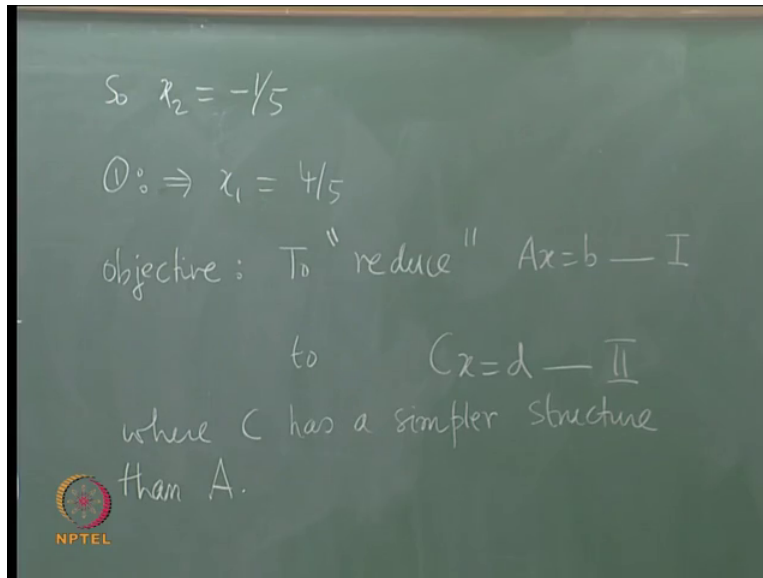 So x₂ = -1/5
①: ⇒ x₁ = 4/5
objective: To "reduce" Ax=b — I
to Cx=d — II
where C has a simpler structure
than A.
NPTEL